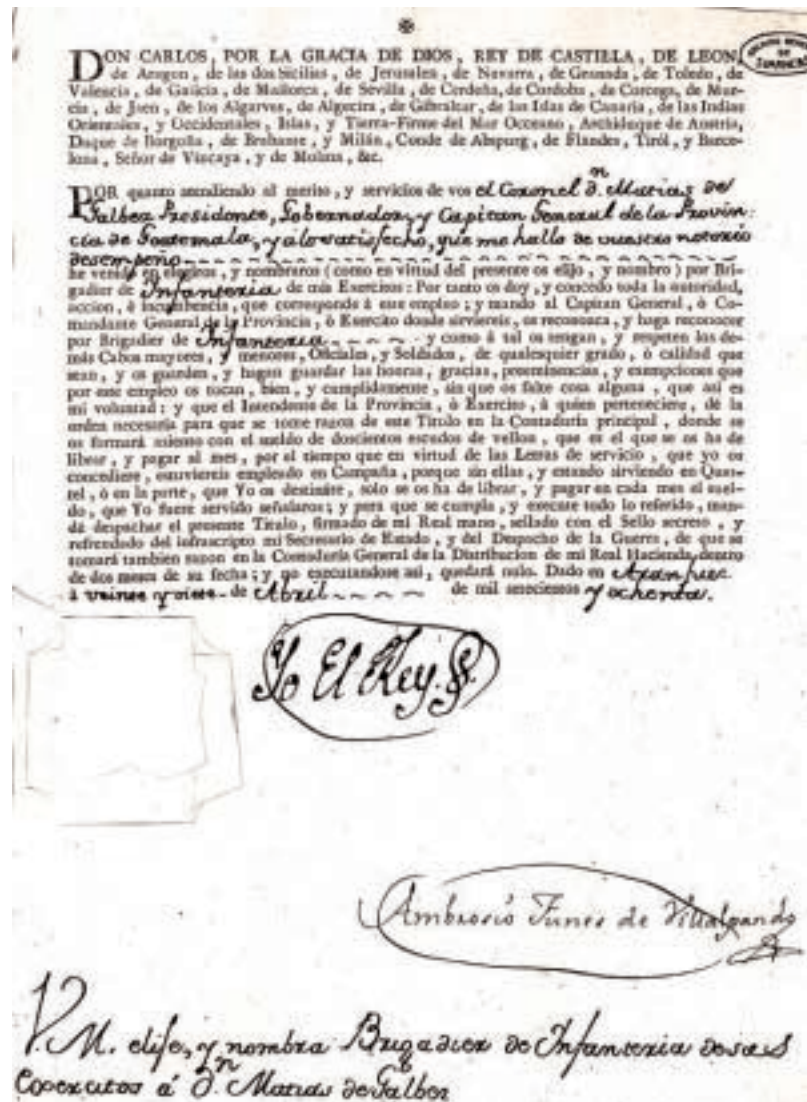 DON CARLOS, POR LA GRACIA DE DIOS, REY DE CASTILLA, DE LEON,
de Aragon, de las dos Sicilias, de Jerusalen, de Navarra, de Granada, de Toledo, de
Valencia, de Galicia, de Mallorca, de Sevilla, de Cerdeña, de Cordoba, de Corcega, de Mur-
cia, de Jaen, de los Algarves, de Algecira, de Gibraltar, de las Islas de Canaria, de las Indias
Orientales, y Occidentales, Islas, y Tierra-Firme del Mar Occeano, Archiduque de Austria,
Duque de Borgoña, de Brabante, y Milán, Conde de Abspurg, de Flandes, Tiról, y Barce-
lona, Señor de Vizcaya, y de Molina, &c.
POR quanto atendiendo al merito, y servicios de vos el Coronel dn. Matias de
Galbez Presidente, Gobernador, y Capitan General de la Provin-
cia de Goatemala, y a lo satisfecho, que me hallo de vuestro notorio
desempeño
he venido en elegiros, y nombraros (como en virtud del presente os elijo, y nombro) por Bri-
gadier de Infanteria de mis Exercitos: Por tanto os doy, y concedo toda la autoridad,
accion, è incumbencia, que corresponde à este empleo; y mando al Capitan General, ò Co-
mandante General de la Provincia, ò Exercito donde sirviereis, os reconozca, y haga reconocer
por Brigadier de Infanteria y como à tal os tengan, y respeten los de-
más Cabos mayores, y menores, Oficiales, y Soldados, de qualesquier grado, ò calidad que
sean, y os guarden, y hagan guardar las honras, gracias, preeminencias, y exempciones que
por este empleo os tocan, bien, y cumplidamente, sin que os falte cosa alguna, que asi es
mi voluntad: y que el Intendente de la Provincia, ò Exercito, à quien perteneciere, dé la
orden necesaria para que se tome razon de este Titulo en la Contaduría principal, donde se
os formará asiento con el sueldo de doscientos escudos de vellon, que es el que se os ha de
librar, y pagar al mes, por el tiempo que en virtud de las Letras de servicio, que yo os
concediere, estuviereis empleado en Campaña, porque sin ellas, y estando sirviendo en Quar-
tel, ò en la parte, que Yo os destináre, solo se os ha de librar, y pagar en cada mes el suel-
do, que Yo fuere servido señalaros; y para que se cumpla, y execute todo lo referido, man-
dé despachar el presente Titulo, firmado de mi Real mano, sellado con el Sello secreto, y
refrendado del infrascripto mi Secretario de Estado, y del Despacho de la Guerra, de que se
tomará tambien razon en la Contaduría General de la Distribucion de mi Real Hacienda, dentro
de dos meses de su fecha; y no executandose asi, quedará nulo. Dado en Aranjuez
à veinte y siete de Abril de mil setecientos y ochenta.
Yo El Rey
Ambrosio Funes de Villalpando
V. M. elije, y nombra Brigadier de Infanteria de sus
Exercitos á dn. Matias de Galbez